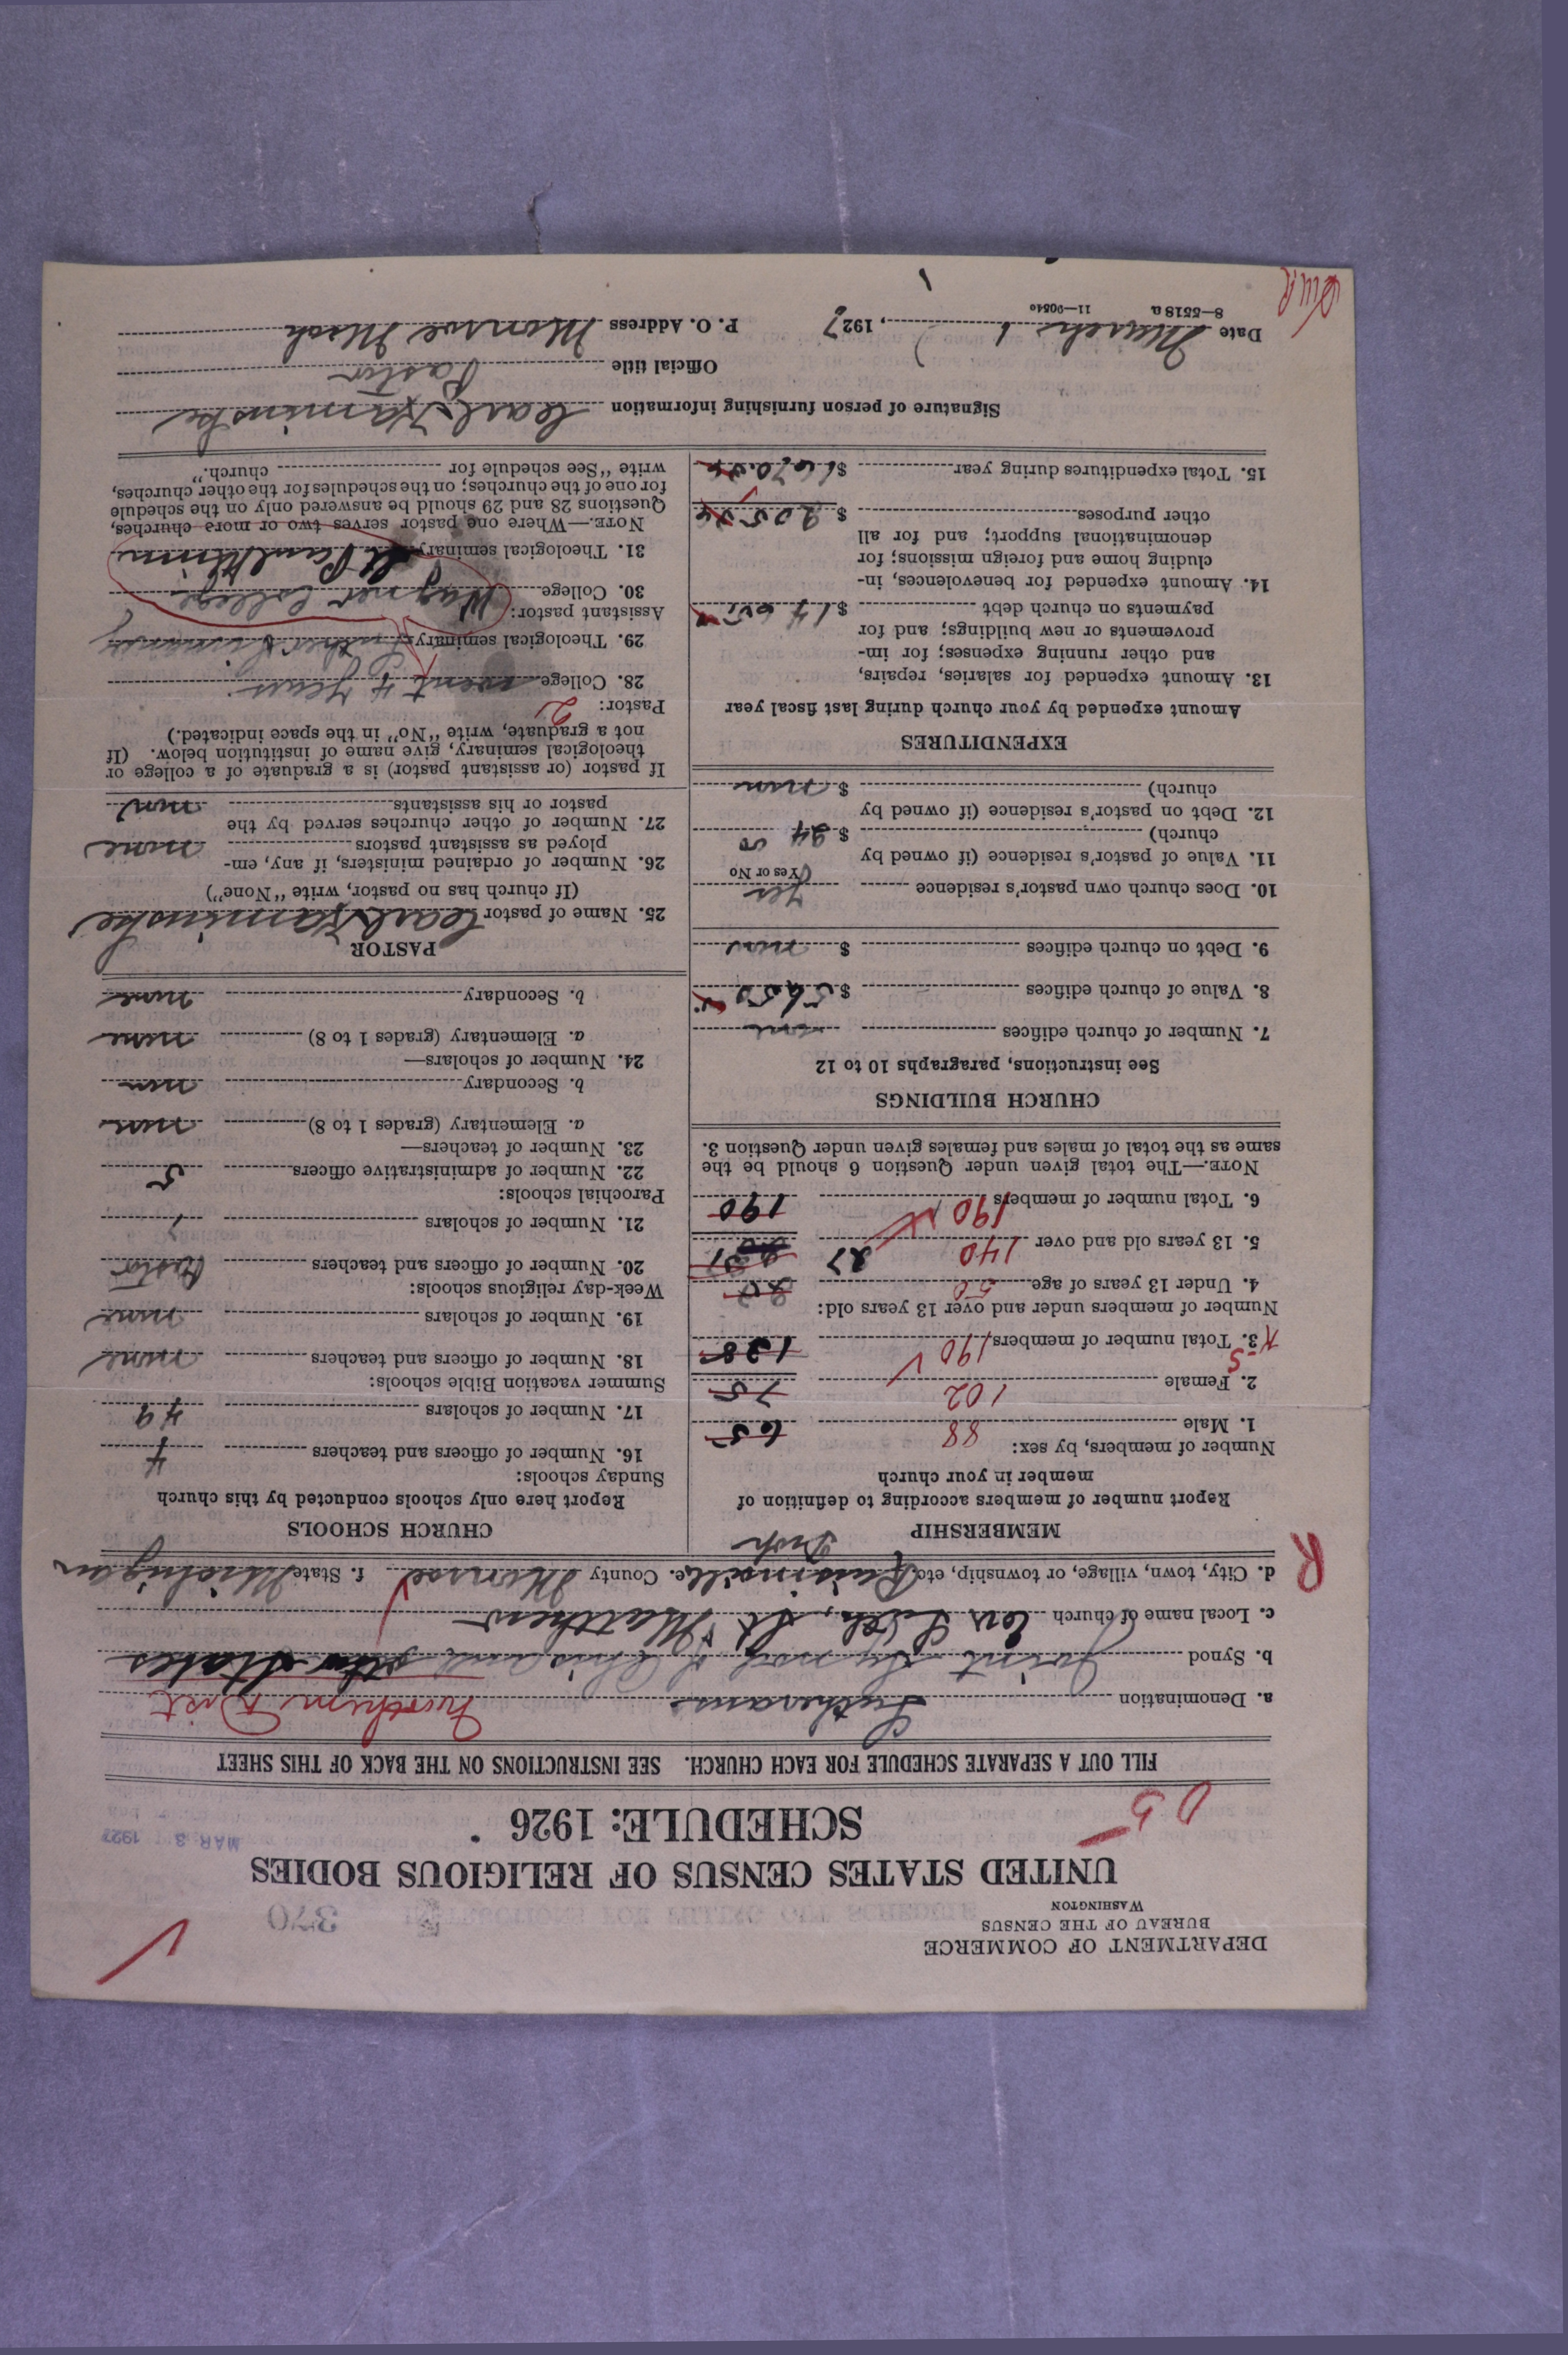 DEPARTMENT OF COMMERCE
BUREAU OF THE CENSUS
WASHINGTON
320
UNITED STATES CENSUS OF RELIGIOUS BODIES
SCHEDULE: 1926
MAR 3 1927
FILL OUT A SEPARATE SCHEDULE FOR EACH CHURCH. SEE INSTRUCTIONS ON THE BACK OF THIS SHEET
a. Denomination Lutheran Northern Dist
b. Synod Joint Synod of Ohio and other States
c. Local name of church Ev. Luth. St Matthew
d. City, town, village, or township, etc. Raisinville e. County Monroe f. State Michigan
R
MEMBERSHIP
Report number of members according to definition of
member in your church
Number of members, by sex:
1. Male 88 65
2. Female 102 75
3. Total number of members 190 138
Number of members under and over 13 years old:
4. Under 13 years of age 50
5. 13 years old and over 140 27
6. Total number of members 190 190
NOTE.—The total given under Question 6 should be the
same as the total of males and females given under Question 3.
CHURCH BUILDINGS
See instructions, paragraphs 10 to 12
7. Number of church edifices one
8. Value of church edifices $ 5650
9. Debt on church edifices $ none
10. Does church own pastor's residence Yes
Yes or No
11. Value of pastor's residence (if owned by
church) $ 24 00
12. Debt on pastor's residence (if owned by
church) $ none
EXPENDITURES
Amount expended by your church during last fiscal year
13. Amount expended for salaries, repairs,
and other running expenses; for im-
provements or new buildings; and for
payments on church debt $
14. Amount expended for benevolences, in-
cluding home and foreign missions; for
denominational support; and for all
other purposes $
15. Total expenditures during year $
CHURCH SCHOOLS
Report here only schools conducted by this church
Sunday schools:
16. Number of officers and teachers 4
17. Number of scholars 49
Summer vacation Bible schools:
18. Number of officers and teachers none
19. Number of scholars none
Week-day religious schools:
20. Number of officers and teachers Pastor
21. Number of scholars
Parochial schools:
22. Number of administrative officers 5
23. Number of teachers—
a. Elementary (grades 1 to 8) none
b. Secondary none
24. Number of scholars—
a. Elementary (grades 1 to 8) none
b. Secondary none
PASTOR
25. Name of pastor Carl Kaminske
(If church has no pastor, write "None")
26. Number of ordained ministers, if any, em-
ployed as assistant pastors none
27. Number of other churches served by the
pastor or his assistants none
If pastor (or assistant pastor) is a graduate of a college or
theological seminary, give name of institution below. (If
not a graduate, write "No" in the space indicated.)
Pastor: 2
28. College went 4 years
29. Theological seminary Luther Seminary
Assistant pastor:
30. College Wagner College
31. Theological seminary St Paul Minn
NOTE.—Where one pastor serves two or more churches,
Questions 28 and 29 should be answered only on the schedule
for one of the churches; on the schedules for the other churches,
write "See schedule for church."
Signature of person furnishing information Carl Kaminske
Official title Pastor
Date March 1, 1927 P. O. Address Monroe Mich
8—5518 a 11—9054c